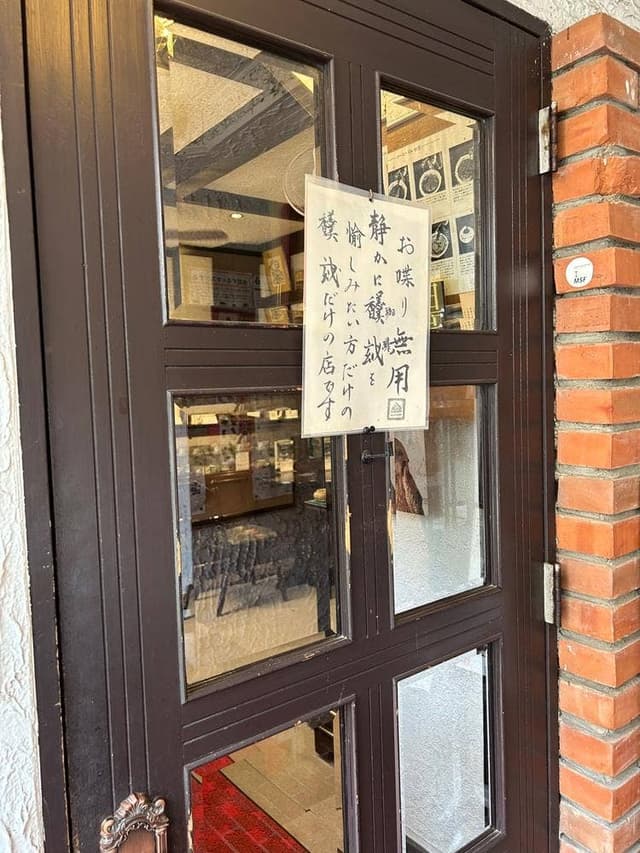 お喋り無用
静かに を
愉しみたい方だけの
だけの店です
MSF